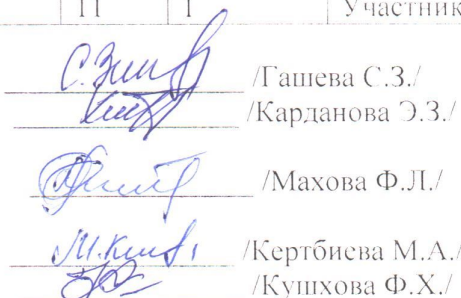 11 1 Участник
/Гашева С.З./
/Карданова Э.З./
/Махова Ф.Л./
/Кертбиева М.А./
/Кушхова Ф.Х./